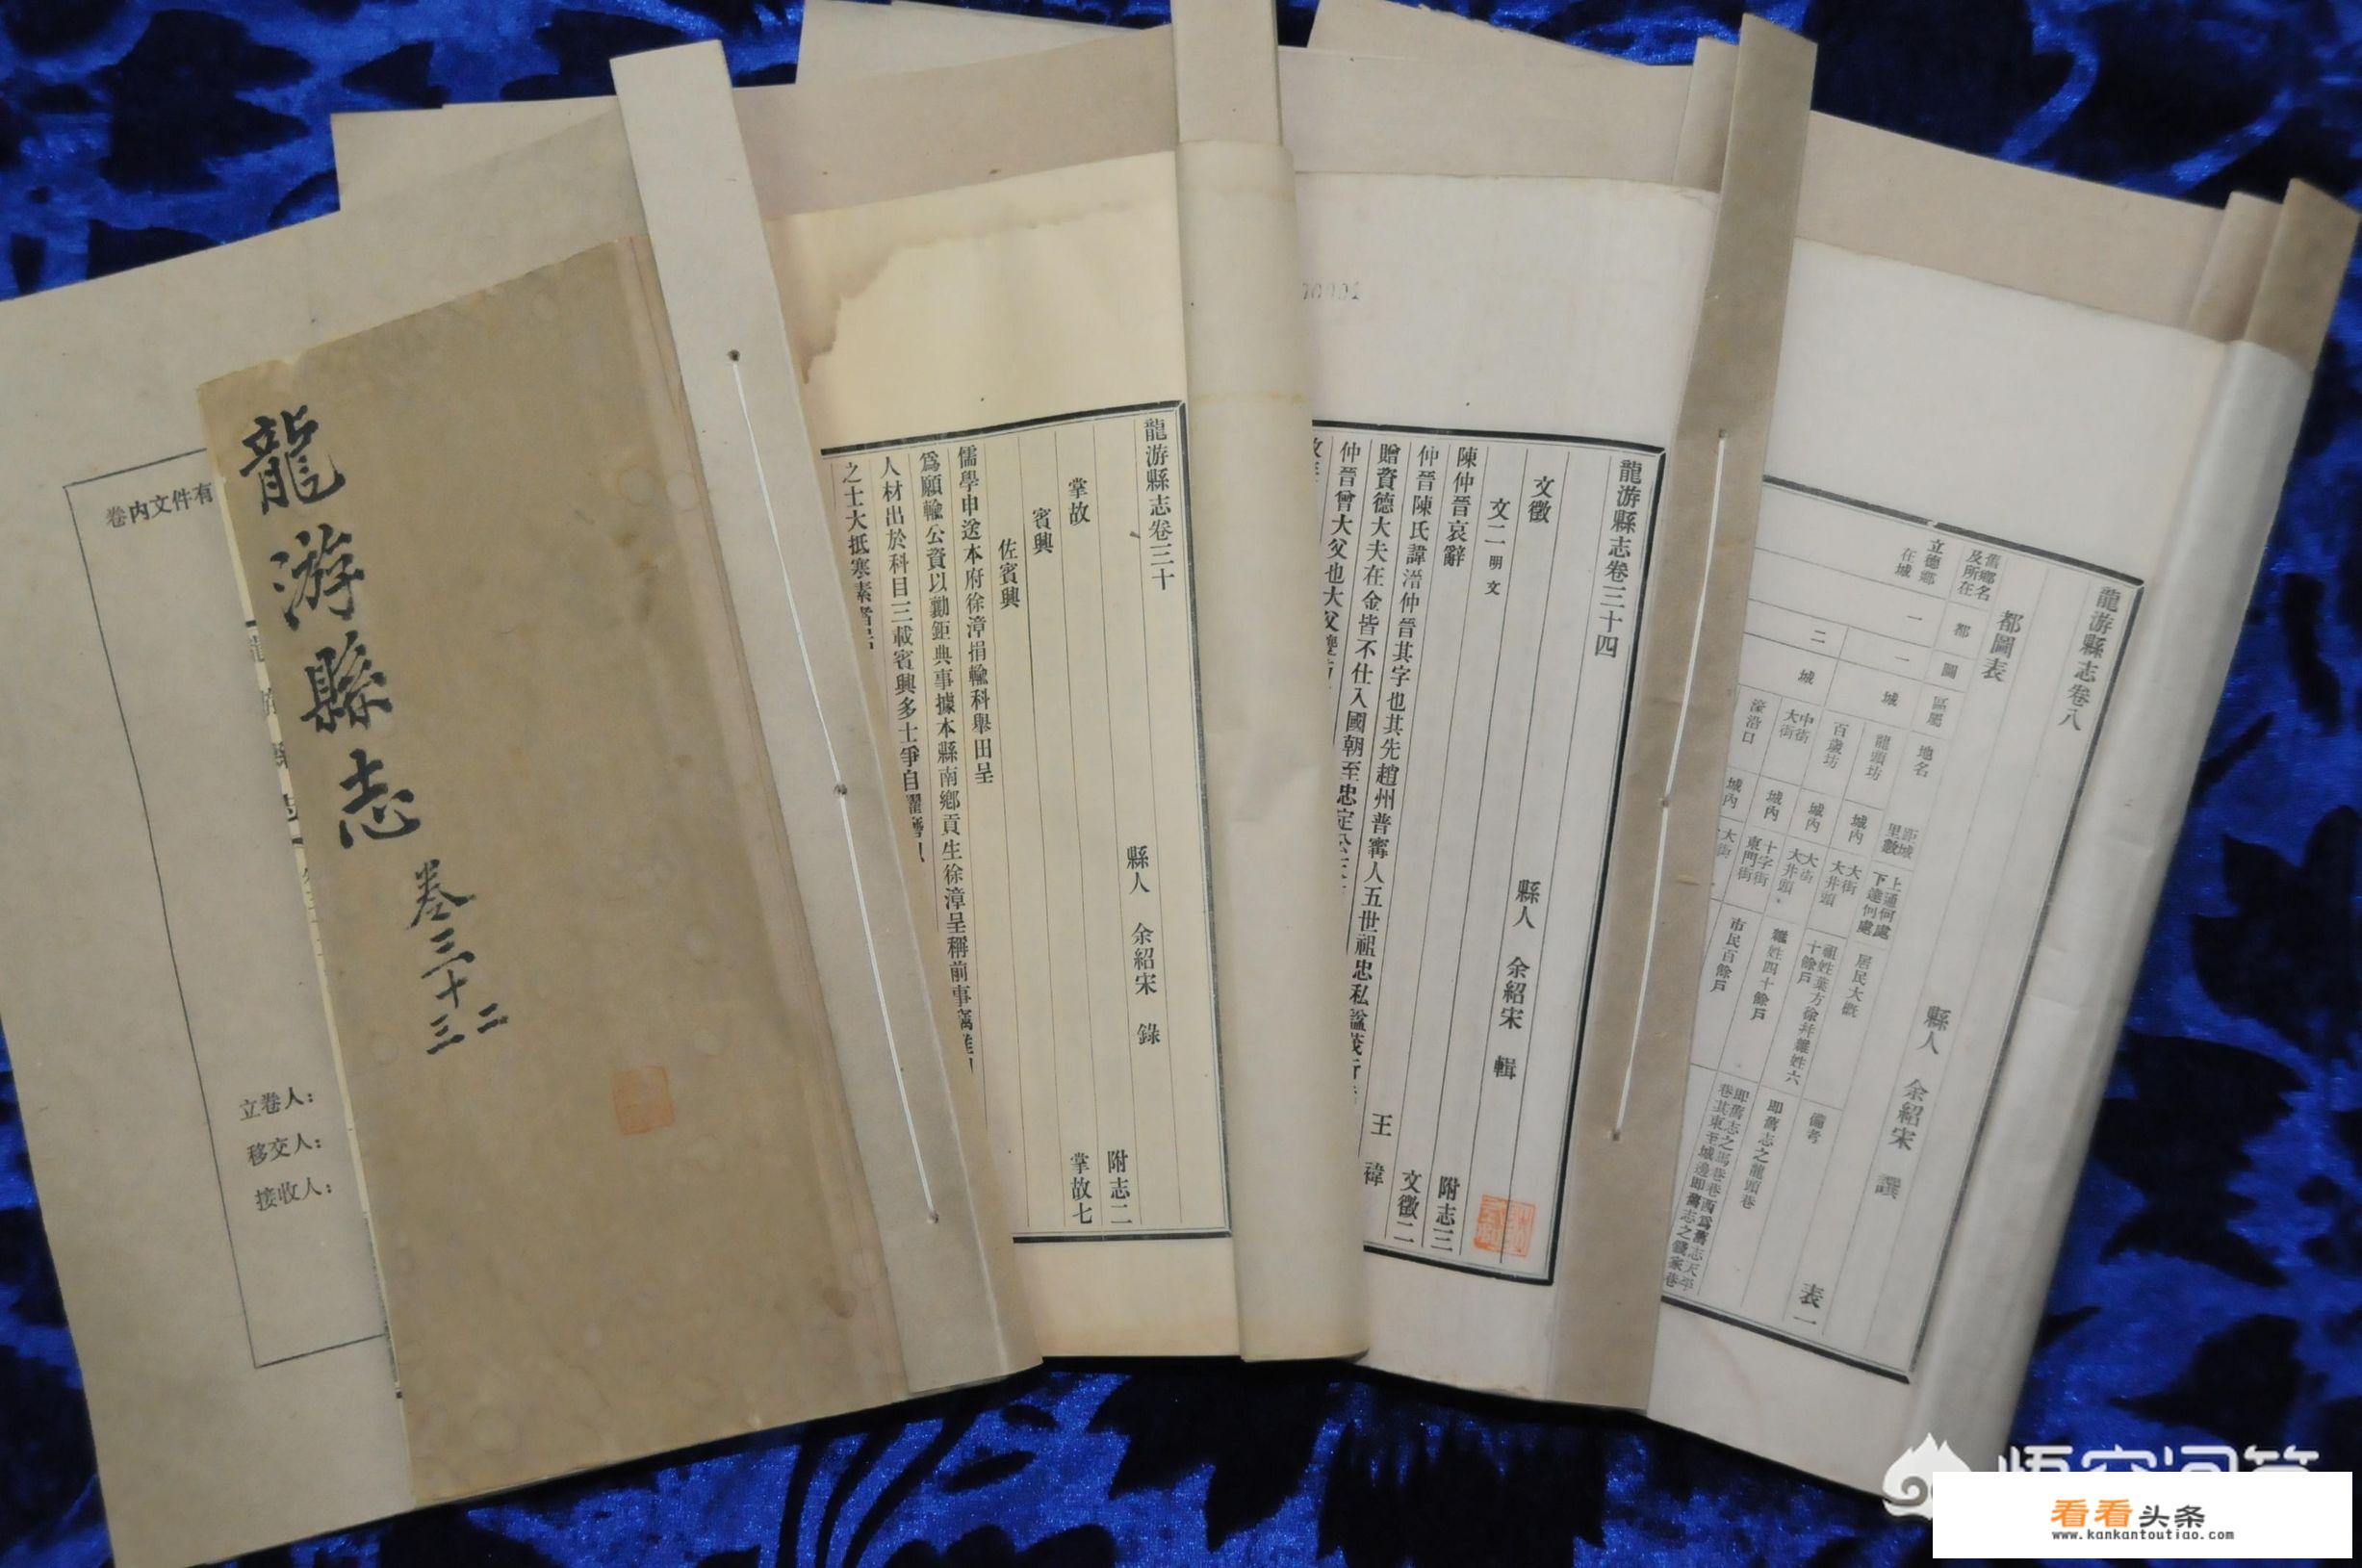 卷內文件有
立卷人：
移交人：
接收人：
龍游縣志
卷三十二
三
龍游縣志卷三十
附志二
縣人 余紹宋 錄
掌故
掌故七
賓興
佐賓興
儒學申送本府徐漳捐輸科舉田呈
爲願輸公資以勷鉅典事據本縣南鄉貢生徐漳呈稱前事
人材出於科目三載賓興多士爭自
之士大抵寒素者
70902
龍游縣志卷三十四
附志三
縣人 余紹宋 輯
文徵
文徵二
文二 明文
陳仲晉哀辭
王禕
仲晉陳氏諱溍仲晉其字也其先趙州普寗人五世祖忠私諡
贈資德大夫在金皆不仕入國朝至忠定公
仲晉曾大父也大父
龍游縣志卷八
表一
縣人 余紹宋 撰
都圖表
舊鄉名及所在
都
圖
區屬
地名
距城里數
上通何處下達何處
居民大概
備考
立德鄉在城
一
一
城
龍頭坊
城內
大街大井頭
祖姓葉方徐 雜姓六十餘戶
即舊志之龍頭巷
百歲坊
城內
大街大井頭
雜姓四十餘戶
二
城
中街大街
城內
十字街東門街
市民百餘戶
濠沿口
城內
大街
悟空问答
看看头条
www.kankantoutiao.com